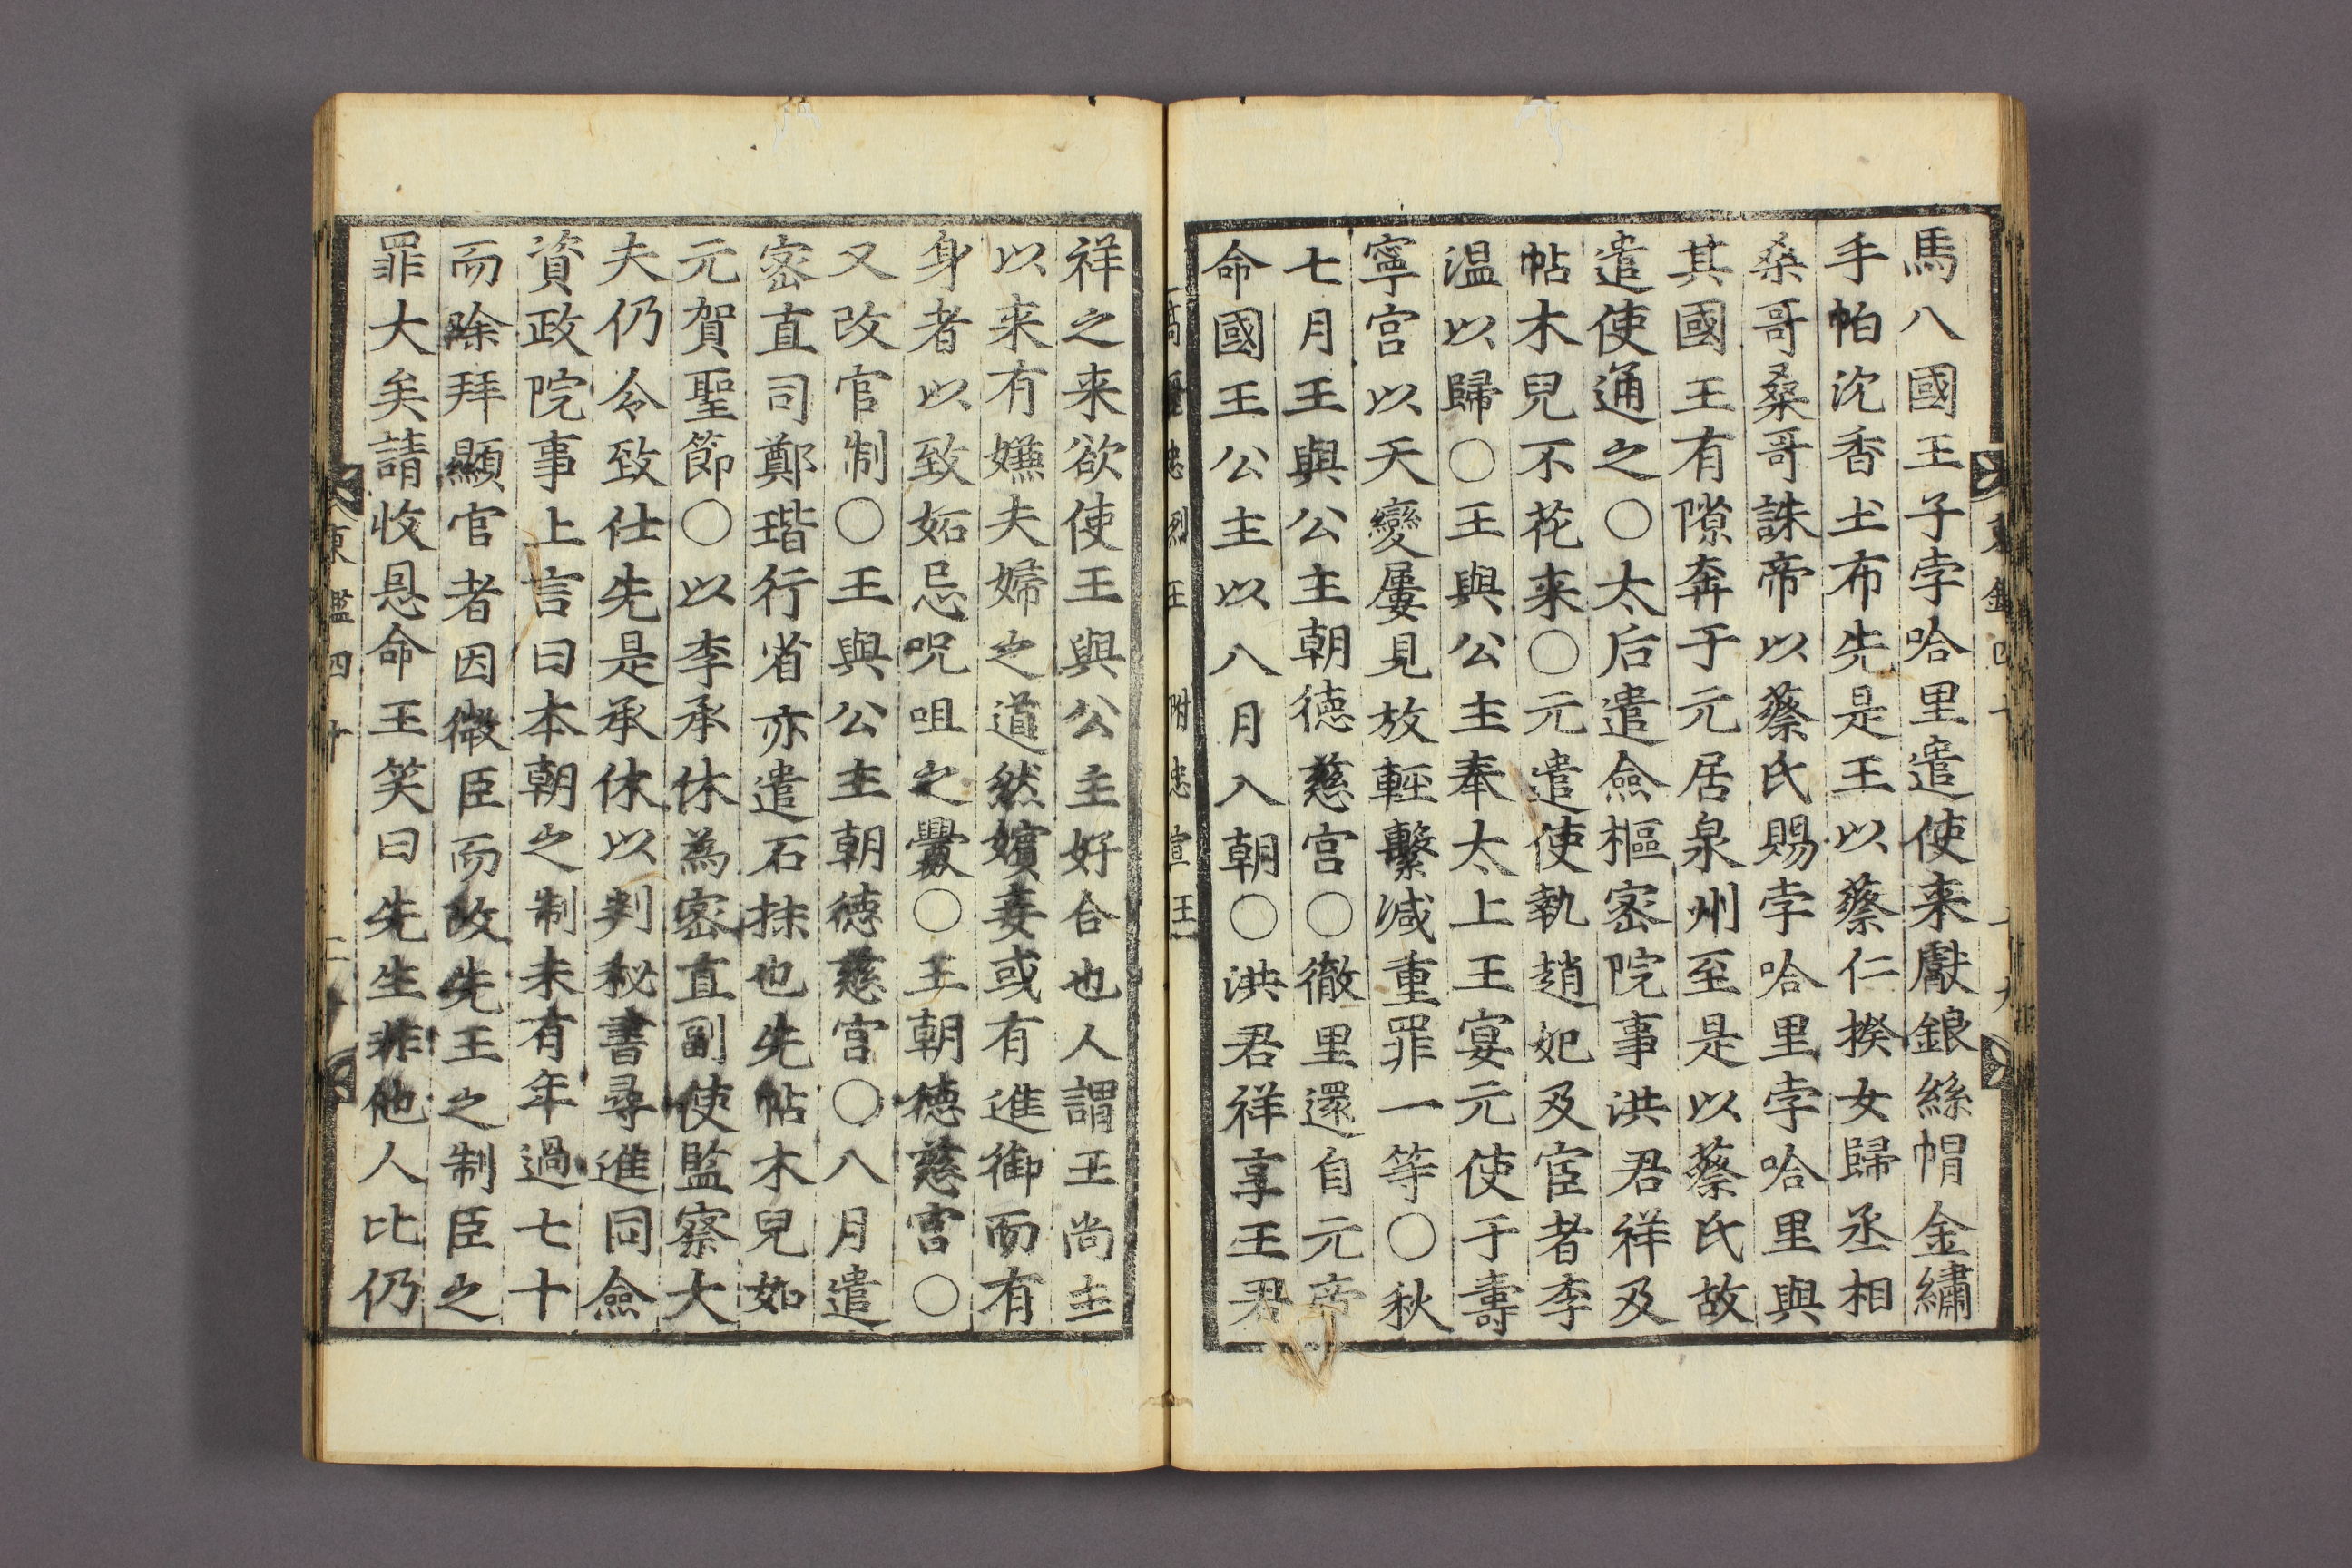 馬八國王子孛哈里遣使来獻銀絲帽金繡
手帕沈香土布先是王以蔡仁揆女歸丞相
桑哥桑哥誅帝以蔡氏賜孛哈里孛哈里與
其國王有隙奔于元居泉州至是以蔡氏故
遣使通之○太后遣僉樞密院事洪君祥及
帖木兒不花来○元遣使執趙妃及宦者李
温以歸○王與公主奉太上王宴元使于壽
寧宮以天變屢見放輕繫減重罪一等○秋
七月王與公主朝德慈宮○徹里還自元帝
命國王公主以八月入朝○洪君祥享王君
高麗忠烈王 附忠宣王
祥之来欲使王與公主好合也人謂王尚主
以来有嫌夫婦之道然嬪妾或有進御而有
身者以致妬忌呪咀之釁○王朝德慈宮○
又改官制○王與公主朝德慈宮○八月遣
密直司鄭瑎行省亦遣石抹也先帖木兒如
元賀聖節○以李承休為密直副使監察大
夫仍令致仕先是承休以判秘書尋進同僉
資政院事上言曰本朝之制未有年過七十
而除拜顯官者因微臣而改先王之制臣之
罪大矣請收恩命王笑曰先生非他人比仍
東鑑四十